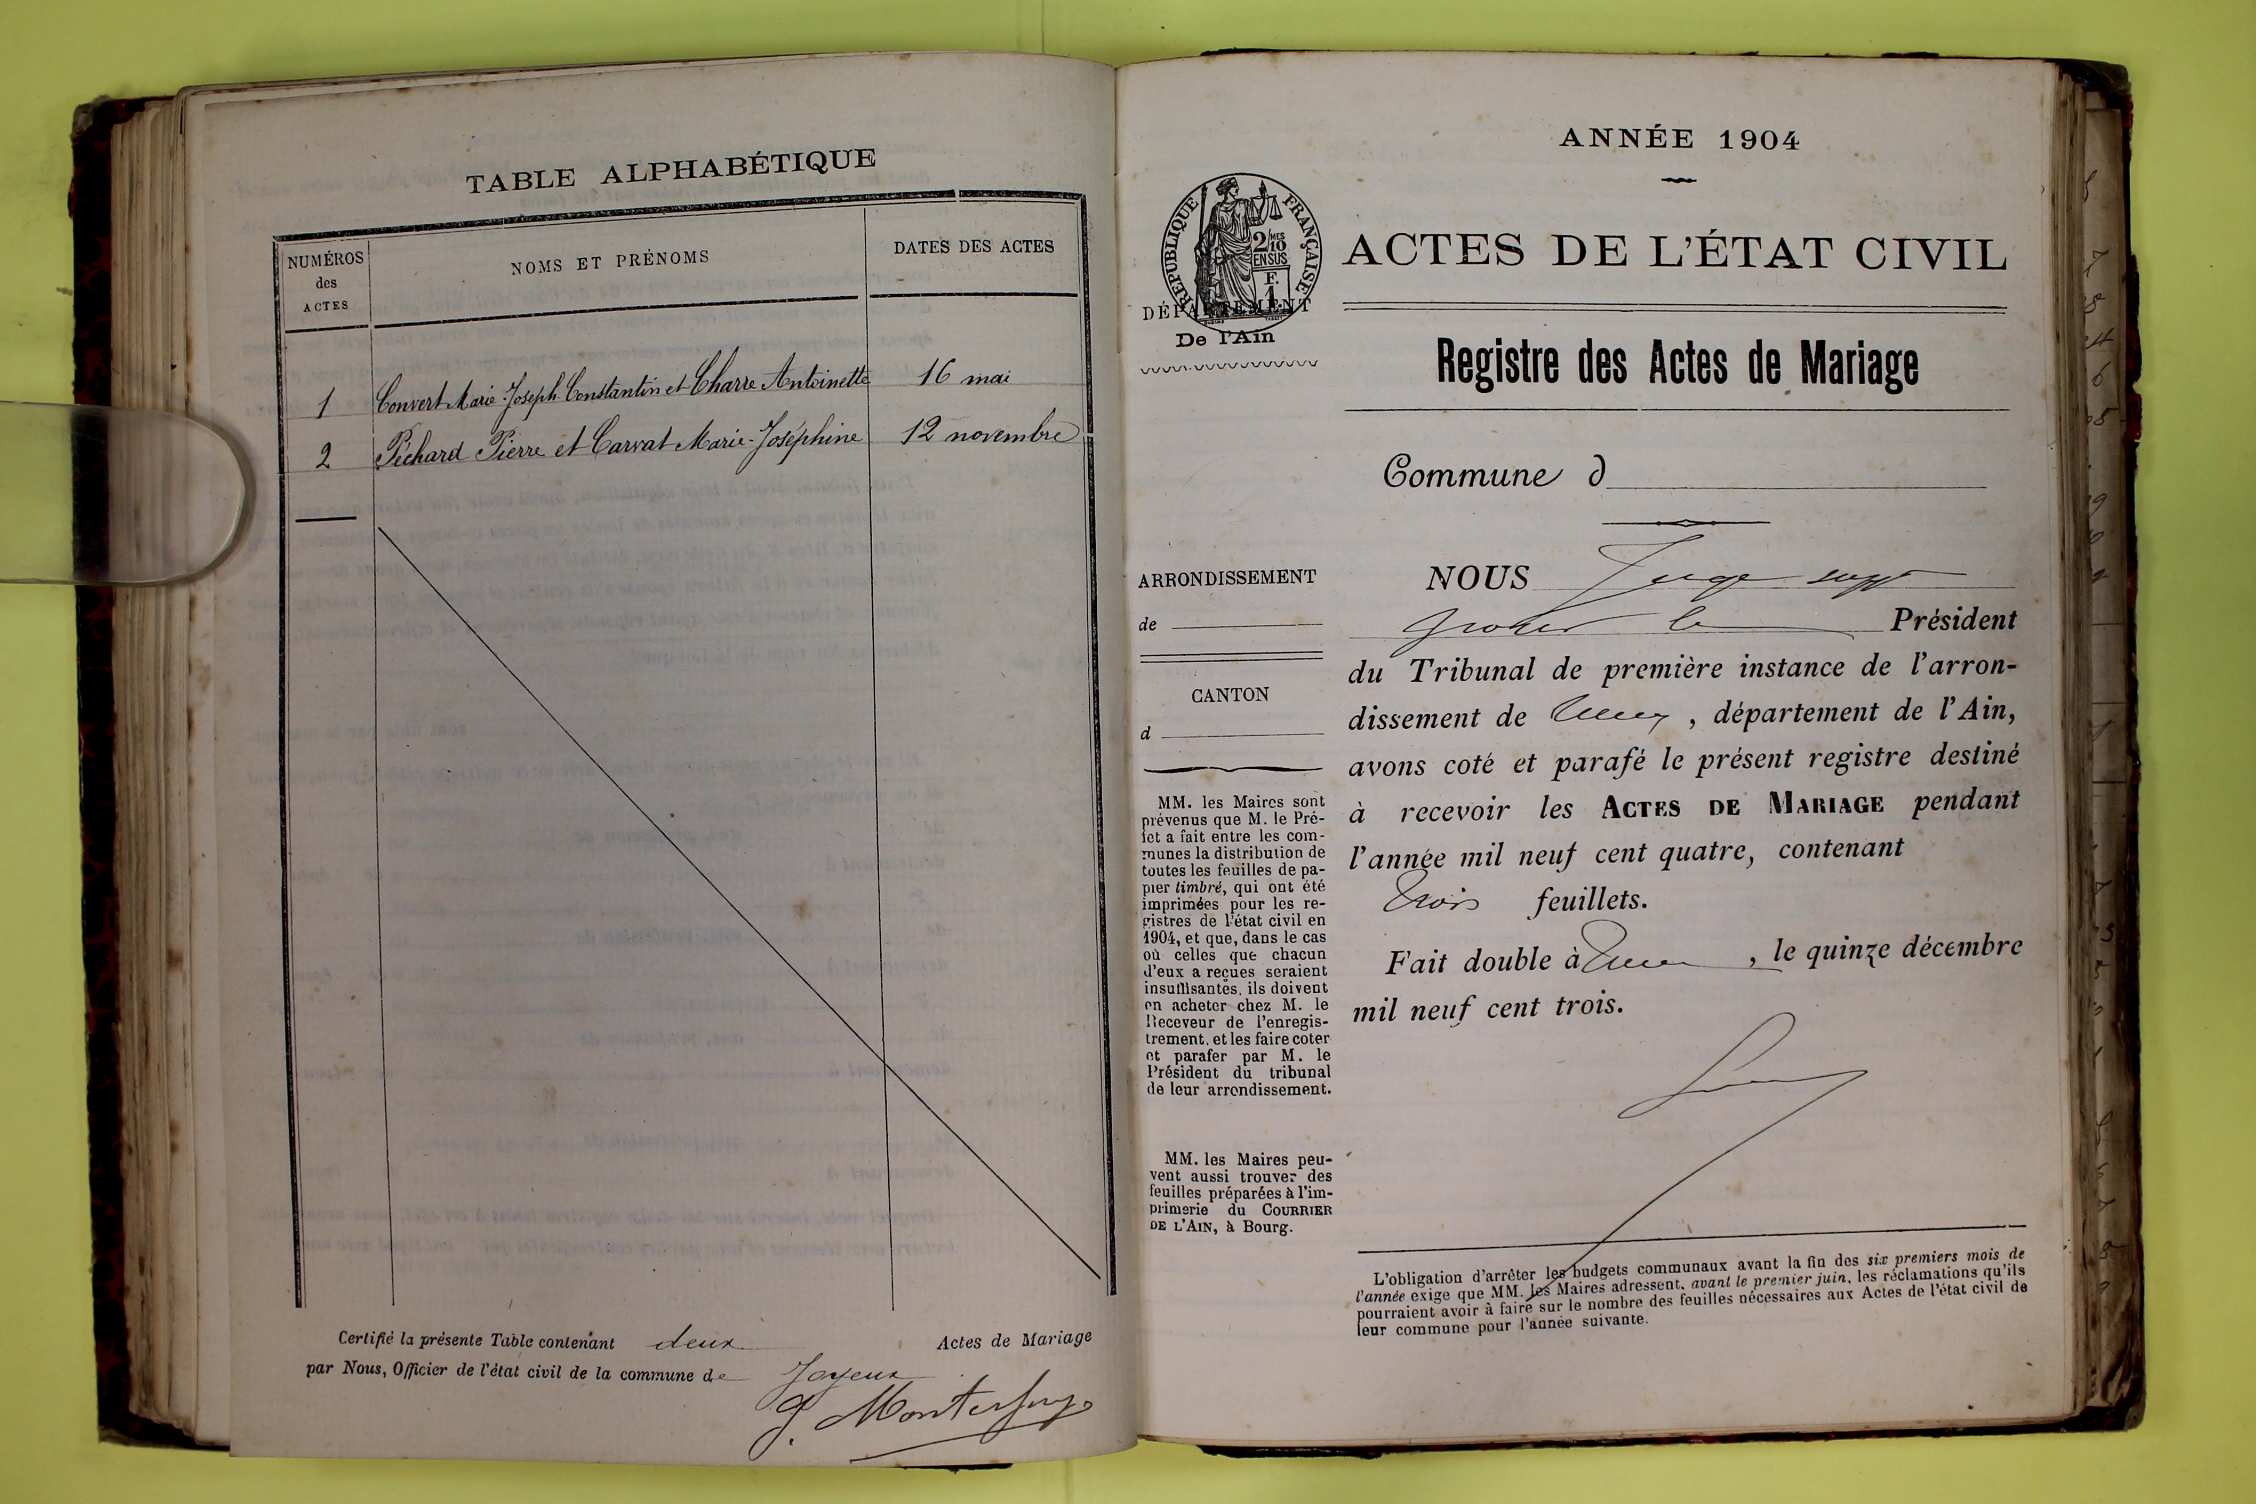 TABLE ALPHABÉTIQUE
NUMÉROS
des
ACTES
NOMS ET PRÉNOMS
DATES DES ACTES
1 Convert Marie-Joseph-Constantin et Charre Antoinette 16 mai
2 Péchard Pierre et Carvat Marie-Joséphine 12 novembre
Certifié la présente Table contenant deux Actes de Mariage
par Nous, Officier de l'état civil de la commune de Joyeux
ANNÉE 1904
RÉPUBLIQUE FRANÇAISE
2/10 MES
EN SUS
F.
1.
DÉPARTEMENT
De l'Ain
ACTES DE L'ÉTAT CIVIL
Registre des Actes de Mariage
Commune d
ARRONDISSEMENT
de
CANTON
d
MM. les Maires sont
prévenus que M. le Pré-
fet a fait entre les com-
munes la distribution de
toutes les feuilles de pa-
pier timbré, qui ont été
imprimées pour les re-
gistres de l'état civil en
1904, et que, dans le cas
où celles que chacun
d'eux a reçues seraient
insuffisantes, ils doivent
en acheter chez M. le
Receveur de l'enregis-
trement, et les faire coter
et parafer par M. le
Président du tribunal
de leur arrondissement.
MM. les Maires peu-
vent aussi trouver des
feuilles préparées à l'im-
primerie du COURRIER
DE L'AIN, à Bourg.
NOUS Juge supp
le Président
du Tribunal de première instance de l'arron-
dissement de , département de l'Ain,
avons coté et parafé le présent registre destiné
à recevoir les ACTES DE MARIAGE pendant
l'année mil neuf cent quatre, contenant
trois feuillets.
Fait double à , le quinze décembre
mil neuf cent trois.
L'obligation d'arrêter les budgets communaux avant la fin des six premiers mois de
l'année exige que MM. les Maires adressent, avant le premier juin, les réclamations qu'ils
pourraient avoir à faire sur le nombre des feuilles nécessaires aux Actes de l'état civil de
leur commune pour l'année suivante.